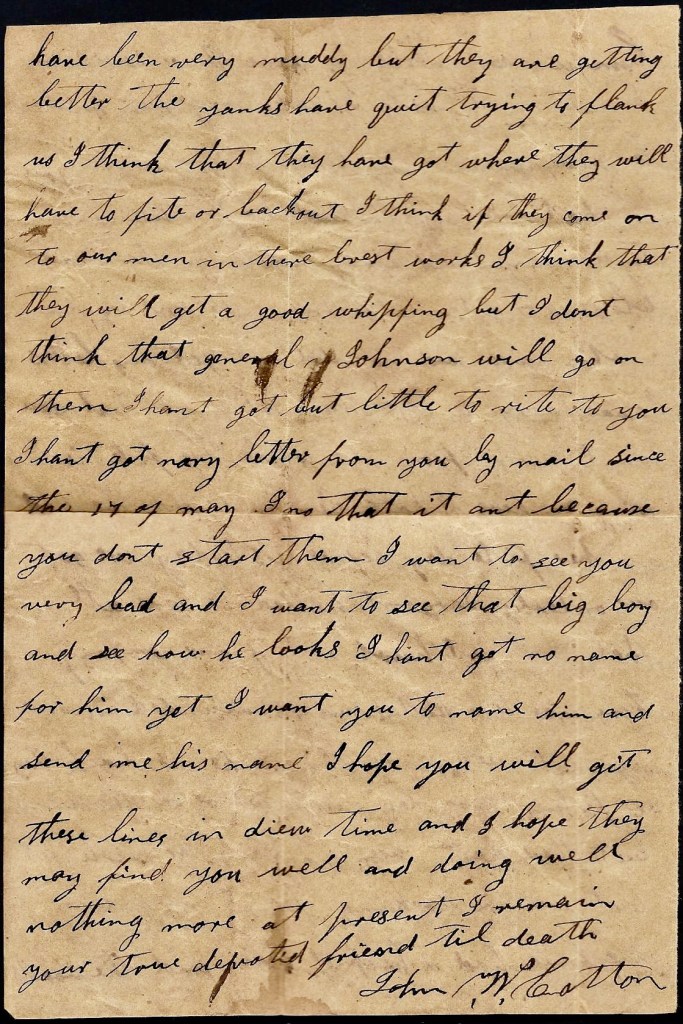 have been very muddy but they are getting
better the yanks have quit trying to flank
us I think that they have got where they will
have to fite or backout I think if they come on
to our men in there brest works I think that
they will get a good whipping but I dont
think that general Johnson will go on
them I hant got but little to rite to you
I hant got nary letter from you by mail since
the 17 of may I no that it ant because
you dont start them I want to see you
very bad and I want to see that big boy
and see how he looks I hant got no name
for him yet I want you to name him and
send me his name I hope you will git
these lines in diew time and I hope they
may find you well and doing well
nothing more at present I remain
your true devoted friend til death
John W. Cotton